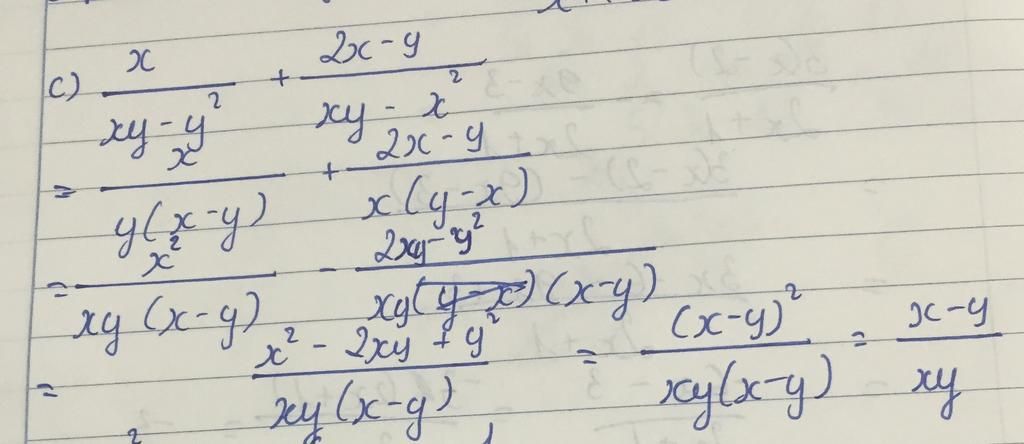 c) x/(xy - y²) + (2x - y)/(xy - x²)
= x/(y(x-y)) + (2x - y)/(x(y-x))
= x²/(xy(x-y)) - (2xy - y²)/(xy(y-x)(x-y))
= (x² - 2xy + y²)/(xy(x-y)) = (x-y)²/(xy(x-y)) = (x-y)/(xy)